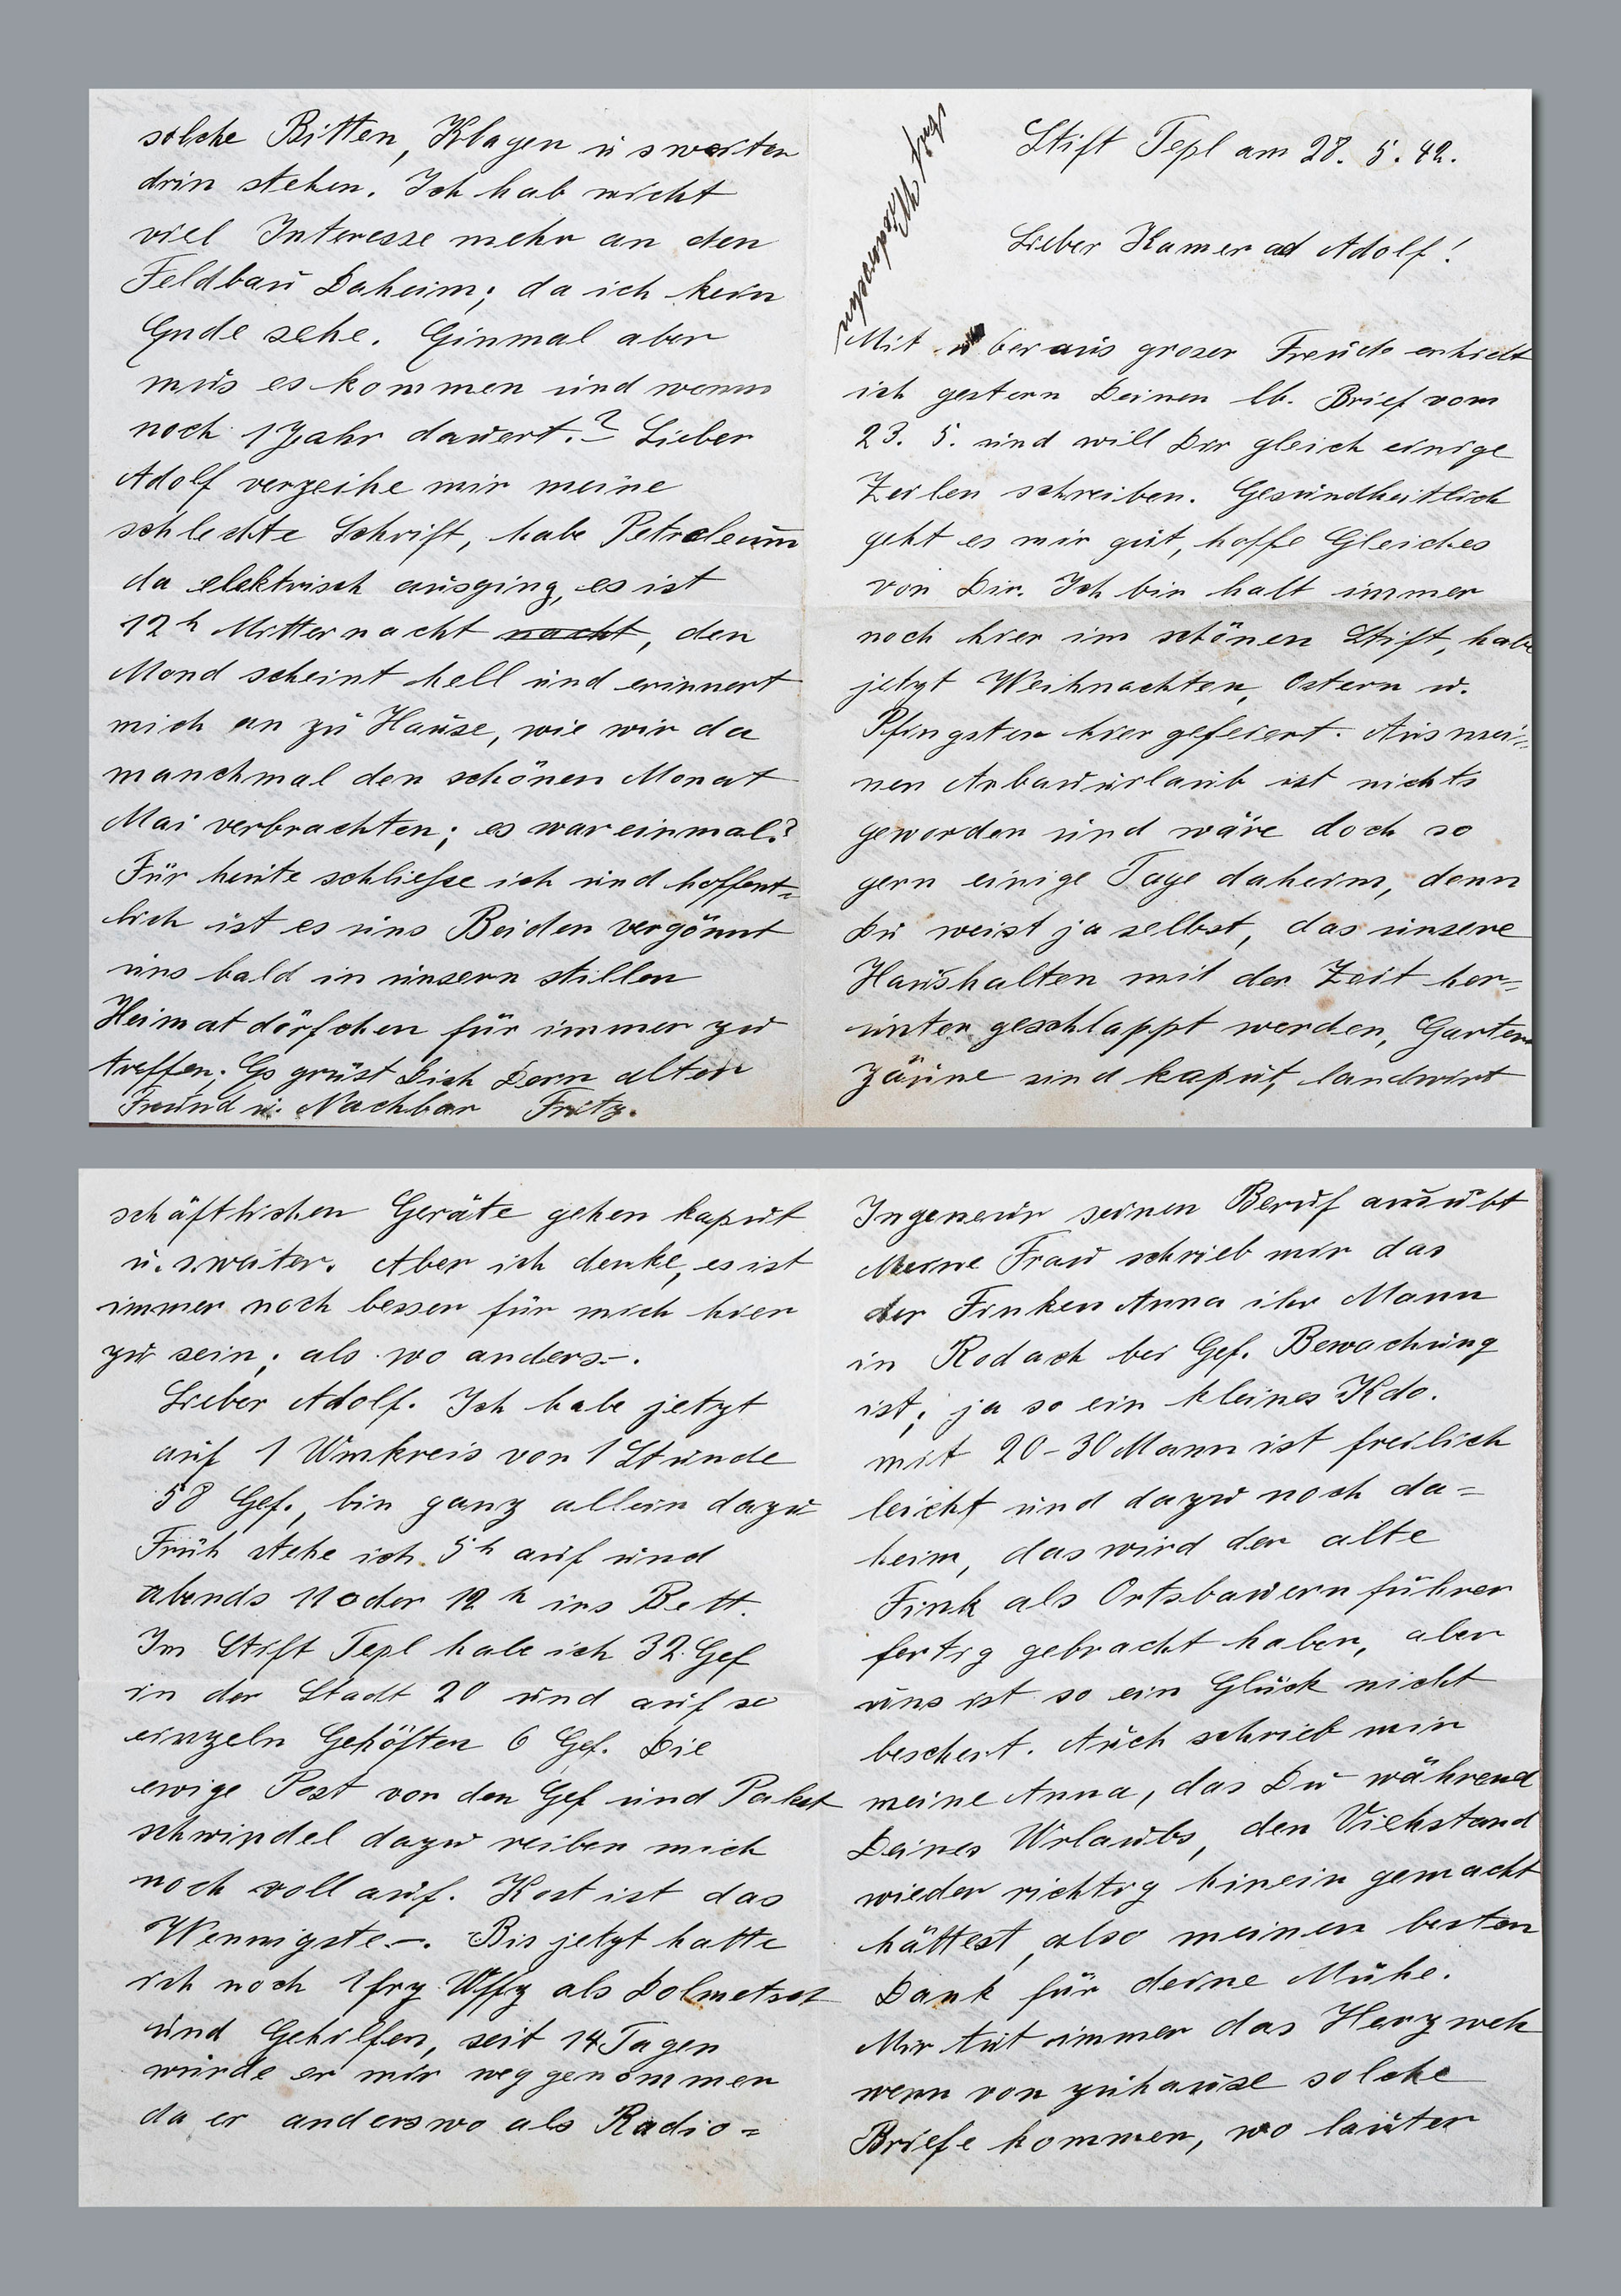 Stift Tepl am 28. 5. 42.
Lieber Kamerad Adolf!
Mit überaus groser Freude erhielt
ich gestern Deinen lb. Brief vom
23. 5. und will Dir gleich einige
Zeilen schreiben. Gesundheitlich
geht es mir gut, hoffe Gleiches
von Dir. Ich bin halt immer
noch hier im schönen Stift, habe
jetzt Weihnachten, Ostern u.
Pfingsten hier gefeiert. Aus mei=
nen Anbauurlaub ist nichts
geworden und wäre doch so
gern einige Tage daheim, denn
Du weist ja selbst, das unsere
Haushalten mit der Zeit her=
unter geschlappt werden, Garten
zäune sind kaput, landwirt
schäftlichen Geräte gehen kaput
u. s. weiter. Aber ich denke, es ist
immer noch besser für mich hier
zu sein; als wo anders.-.
Lieber Adolf. Ich habe jetzt
auf 1 Umkreis von 1 Stunde
58 Gef., bin ganz allein dazu
Früh stehe ich 5 h auf und
abends 11 oder 12 h ins Bett.
Im Stift Tepl habe ich 32 Gef
in der Stadt 20 und auf so
einzeln Gehöften 6 Gef. Die
ewige Post von den Gef und Paket
schwindel dazu reiben mich
noch voll auf. Kost ist das
Wennigste.-. Bis jetzt hatte
ich noch 1 frz Uffz als Dolmetsch
und Gehilfen, seit 14 Tagen
wurde er mir weggenommen
da er anderswo als Radio=
Ingeneur seinen Beruf ausübt
Meine Frau schrieb mir das
der Finken Anna ihr Mann
in Rodach bei Gef. Bewachung
ist; ja so ein kleines Kdo.
mit 20-30 Mann ist freilich
leicht und dazu noch da=
heim, das wird der alte
Fink als Ortsbauernführer
fertig gebracht haben, aber
uns ist so ein Glück nicht
beschert. Auch schrieb mir
meine Anna, das Du während
Deines Urlaubs, den Viehstand
wieder richtig hinein gemacht
hättest, also meinen besten
Dank für deine Mühe.
Mir tut immer das Herz weh
wenn von zuhause solche
Briefe kommen, wo lauter
solche Bitten, Klagen u s weiter
drin stehen. Ich hab nicht
viel Interesse mehr an den
Feldbau Daheim; da ich kein
Ende sehe. Einmal aber
mus es kommen und wenns
noch 1 Jahr dauert.? Lieber
Adolf verzeihe mir meine
schlechte Schrift, habe Petroleum
da elektrisch ausging, es ist
12 h Mitternacht nacht, den
Mond scheint hell und erinnert
mich an zu Hause, wie wir da
manchmal den schönen Monat
Mai verbrachten; es war einmal?
Für heute schliesse ich und hoffent=
lich ist es uns Beiden vergönnt
uns bald in unsern stillen
Heimatdörfchen für immer zu
treffen; Es grüst Dich Dein alter
Freund u. Nachbar Fritz.